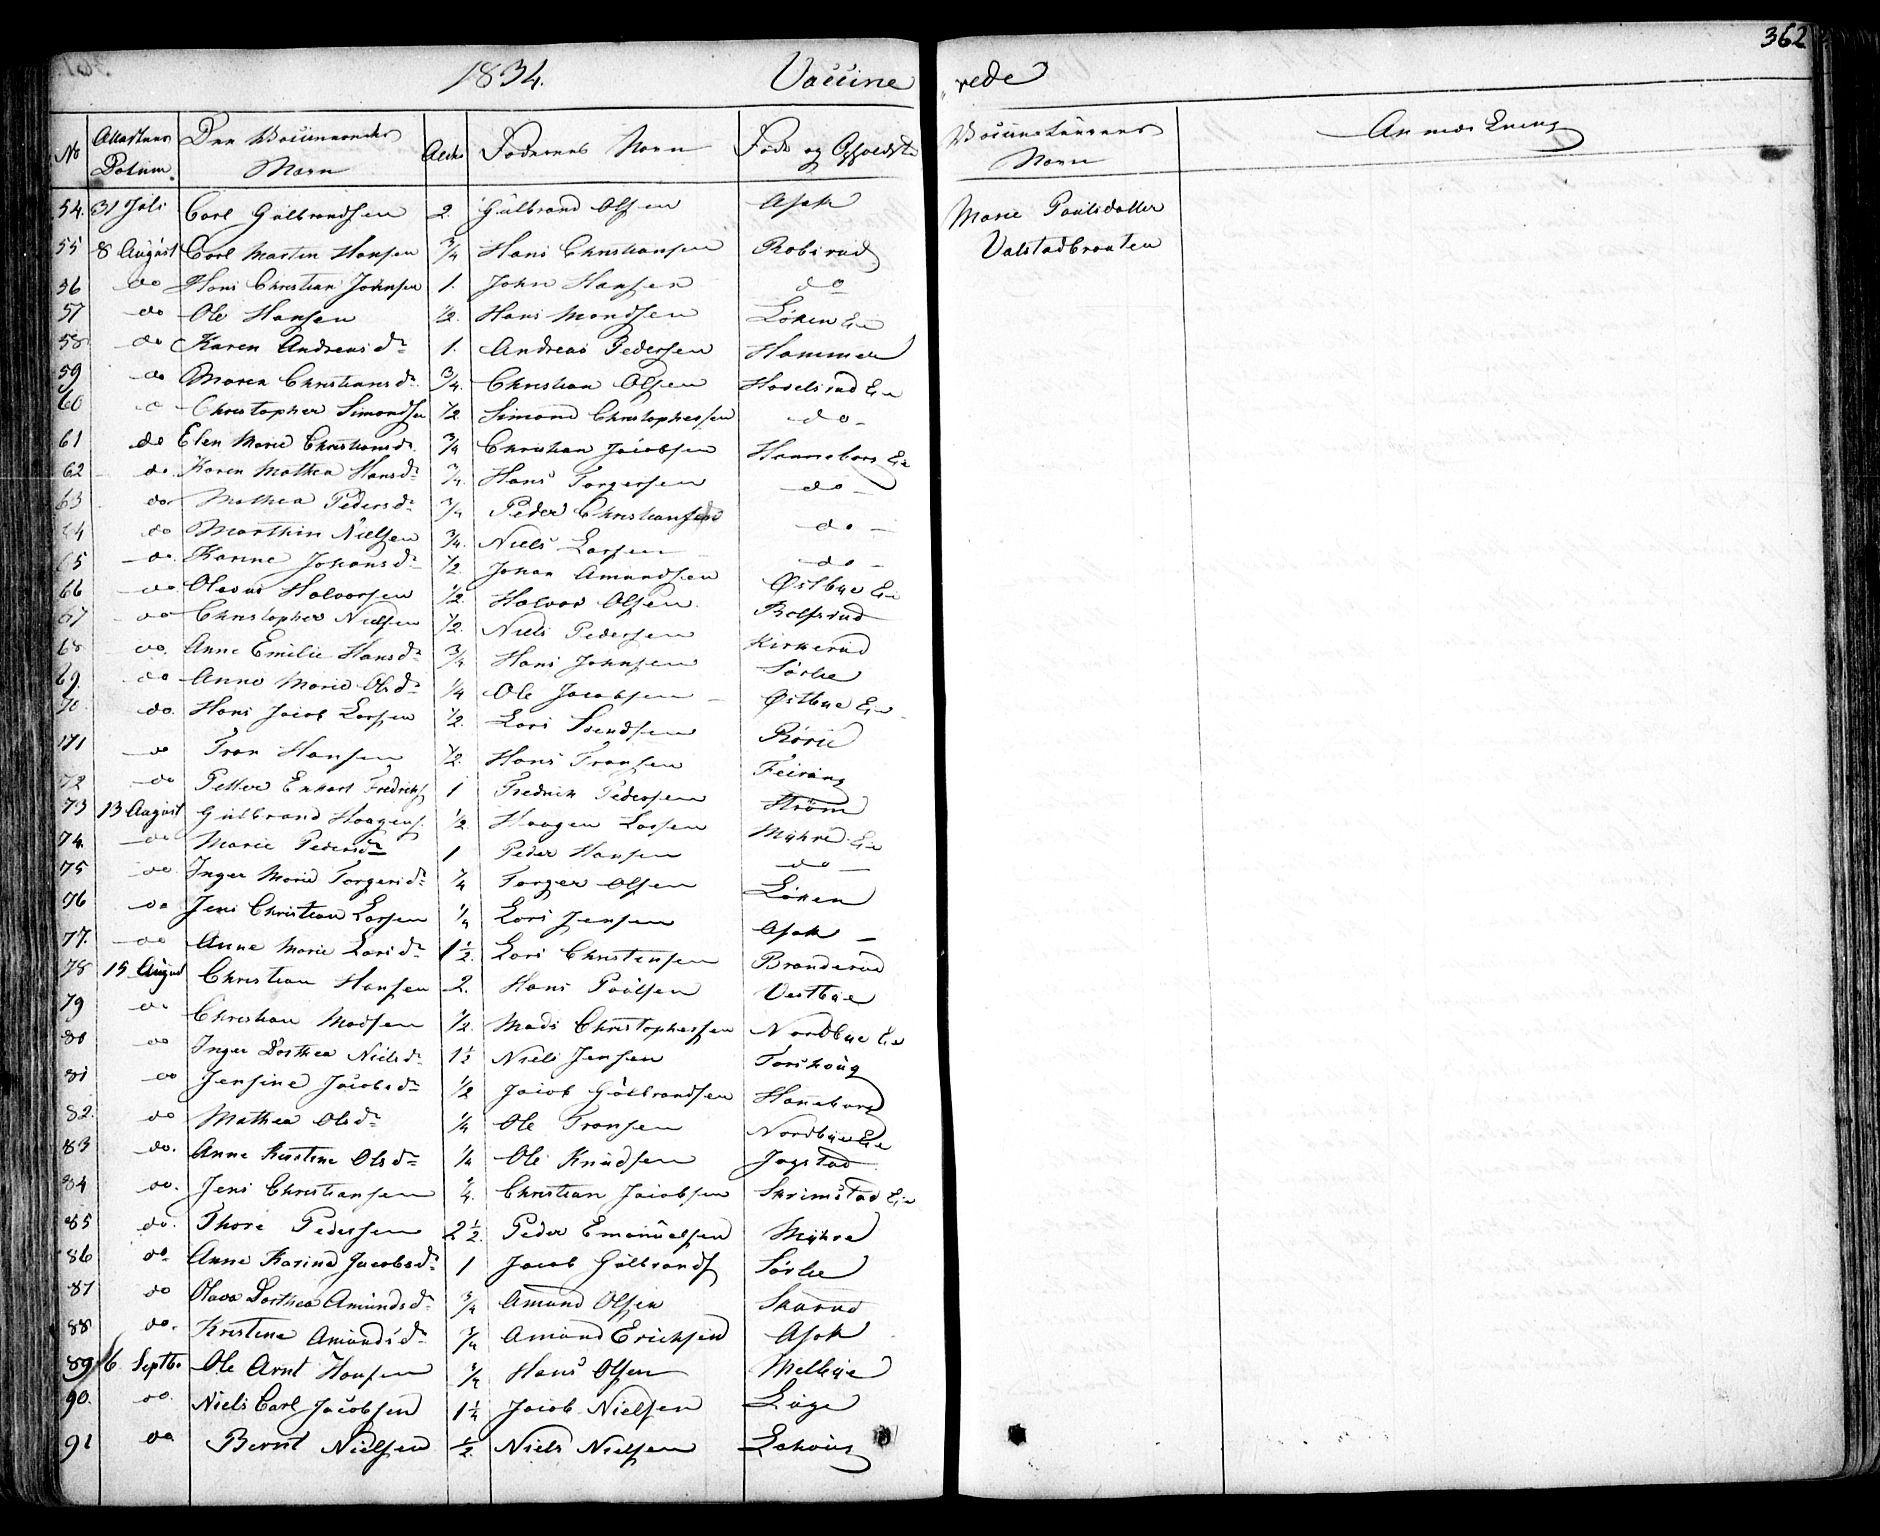 362
1834. Vaccine rede
No Attestens Datum. Den Vaccineredes Navn Alder Faderens Navn Føde og Opholdst Vaccinateurens Navn Anmærkning
54. 31 Juli Carl Gulbrandsen 2. Gulbrand Olsen Asak Marie Paulsdatter
55 8 August Carl Martin Hansen 3/4 Hans Christiansen Robsrud Valstadbraaten
56 do Hans Christian Johnsen 1. John Hansen do
57 do Ole Hansen 1/2. Hans Mondsen Løken Eie
58 do Karen Andreasdr 1. Andreas Pedersen Hammer
59 do Maren Christiansdr 3/4. Christian Olsen Haselsrud Eie
60 do Christopher Simondsen 1/2 Simond Christophersen do
61 do Elen Marie Christiansdr 3/4 Christian Jacobsen Hanneborg Eie
62 do Karen Mathea Hansdr 3/4. Hans Torgersen do
63 do Mathea Pedersdr 3/4 Peder Christiansen do
64 do Marthin Nielsen 3/4. Niels Larsen do
65 do Karine Johansdr 1/2 Johan Amundsen do
66 do Olavus Halvorsen 1/2. Halvor Olsen Østbye Eie
67 do Christopher Nielsen 1/2. Niels Pedersen Bolfsrud
68 do. Anne Emilie Hansdr 3/4 Hans Johnsen Kirkerud
69. do Anne Marie Olsdr 1/4 Ole Jacobsen Sørlie
70. do. Hans Jacob Larsen 1/2. Lars Svendsen Østbye Eie
71 do Tron Hansen 1/2. Hans Tronsen Rørie
72 do Petter Enhart Fredrichs 1 Fredrich Pedersen Feiring
73 13 August Gulbrand Haagens. 1/2. Haagen Larsen Strøm
74. do Marie Pedersdr 1 Peder Hansen Myhre Eie
75 do Inger Marie Torgersdr 1/4 Torger Olsen do
76 do Jens Christian Larsen 1/4 Lars Jensen Løken
77. do Anne Marie Larsdr 1 1/2. Lars Christensen Asak
78 15 August Christian Hansen 2. Hans Paulsen Branderud
79 do Christian Madsen 1/2. Mads Christophersen Vestbye
80 do Inger Dorthea Nielsdr 1 1/2 Niels Jensen Nordbye Eie
81 do Jensine Jacobsdr 1/2 Jacob Gulbrandsen Torshoug
82. do Mathea Olsdr 1/4 Ole Tronsen Haneborg
83 do. Anne Kirstine Olsdr 1/4 Ole Knudsen Nordbye Eie
84 do. Jens Christiansen 1/4. Christian Jacobsen Jogstad
85 do. Thore Pedersen 2 1/2. Peder Emanuelsen Skrimstad Eie
86 do Anne Karine Jacobsdr 1 Jacob Gulbrands Myhre
87 do Olava Dorthea Amundsdr 3/4 Amund Olsen Sørlie
88 do. Kristine Amundsdr 3/4 Amund Ericksen Skarud
89 16 Septbr Ole Arnt Hansen 3/4 Hans Olsen Asak
90. do. Niels Carl Jacobsen 1 1/4 Jacob Nielsen Melbye
91 do Bernt Nielsen 1/2. Niels Nielsen Lüge
Lahaug